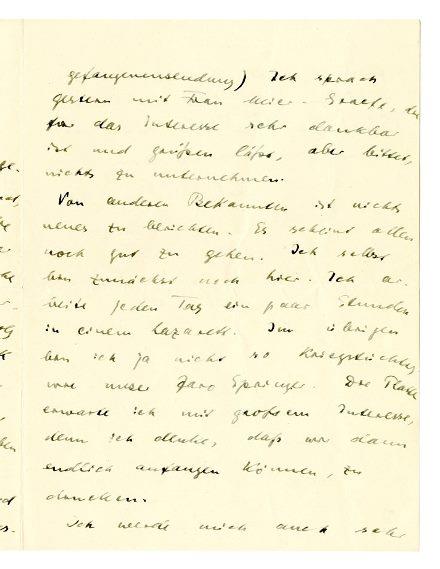 gefangenensendung) Ich sprach
gestern mit Frau Meier-Graefe, die
für das Interesse sehr dankbar
ist und grüßen läßt, aber bittet,
nichts zu unternehmen.
Von anderen Bekannten ist nichts
neues zu berichten. Es scheint allen
noch gut zu gehen. Ich selbst
bin zunächst noch hier. Ich ar-
beite jeden Tag ein paar Stunden
in einem Lazarett. Im übrigen
bin ich ja nicht so kriegstüchtig
wie unser Jaro Springer. Die Platte
erwarte ich mit großem Interesse,
denn ich denke, daß wir dann
endlich anfangen können, zu
drucken.
Ich werde mich auch sehr